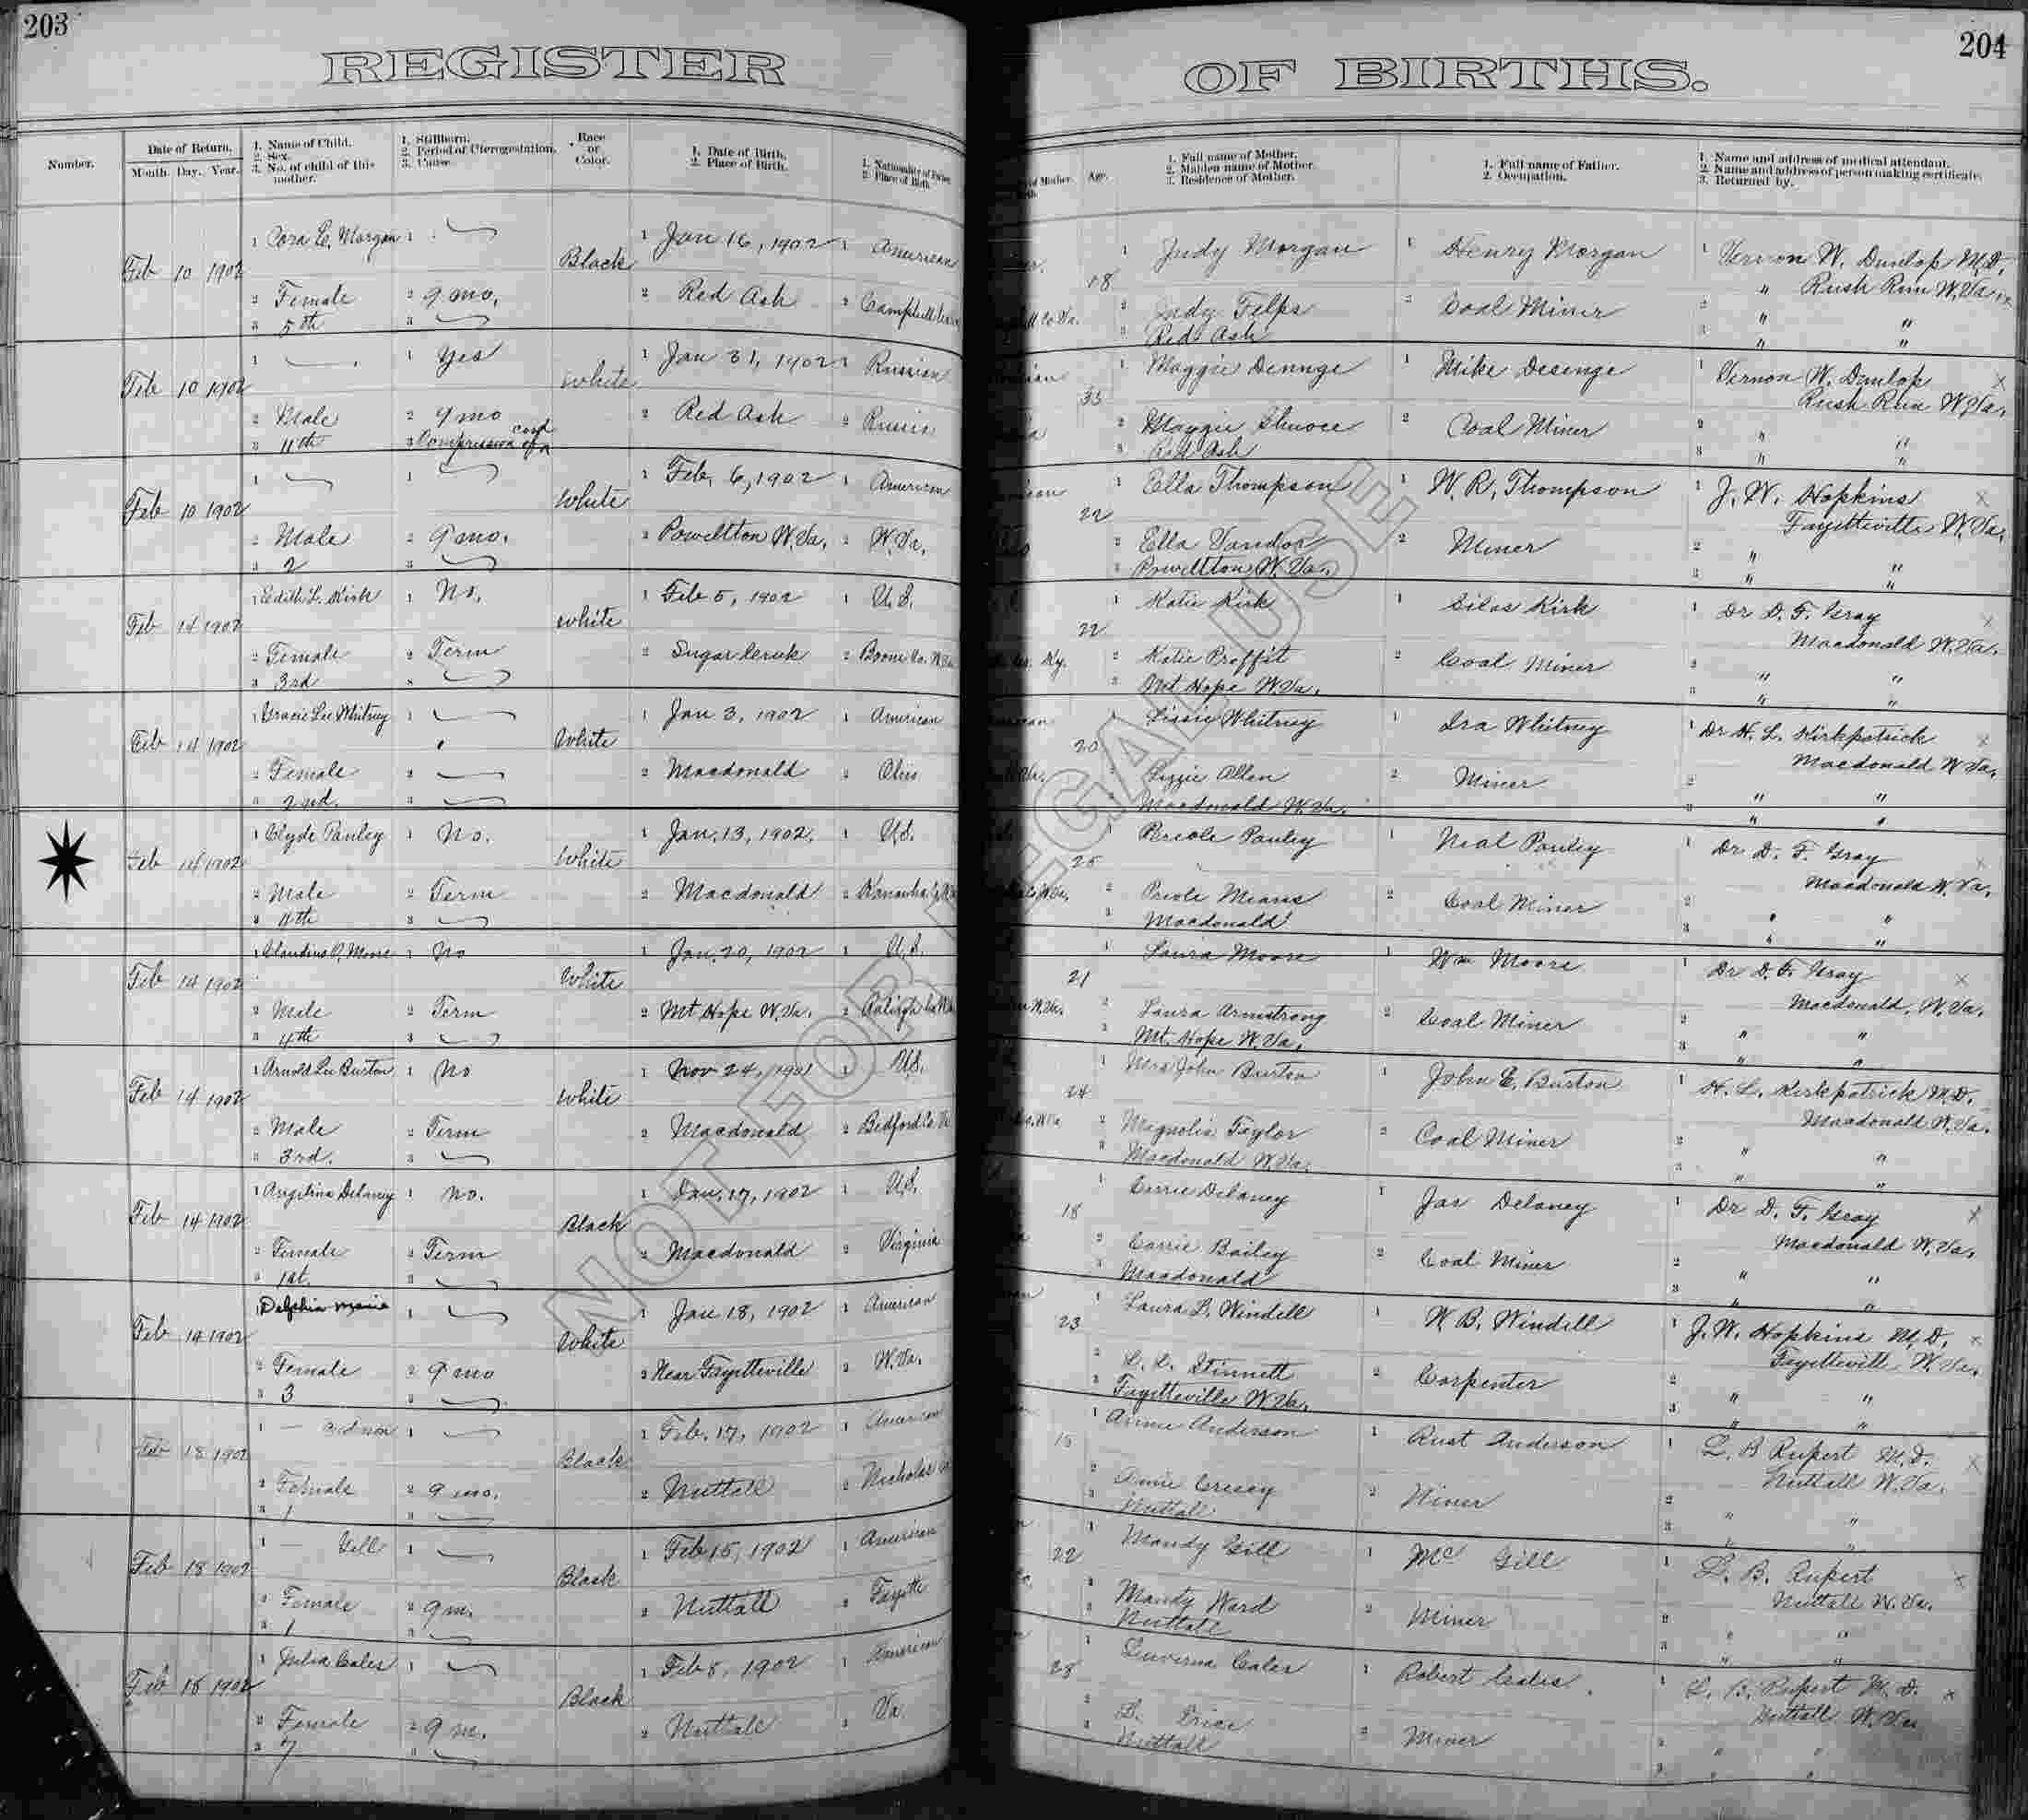 203
REGISTER
OF BIRTHS.
204
Number.
Date of Return.
Month. Day. Year.
1. Name of Child.
2. Sex.
3. No. of child of this mother.
1. Stillborn.
2. Period of Uterogestation.
3. Cause.
Race or Color.
1. Date of Birth.
2. Place of Birth.
1. Nationality of Father.
2. Place of Birth
Age.
1. Full name of Mother.
2. Maiden name of Mother.
3. Residence of Mother.
1. Full name of Father.
2. Occupation.
1. Name and address of medical attendant.
2. Name and address of person making certificate.
3. Returned by.
Feb 10 1902 1 Cora E. Morgan 1 Black 1 Jan 16, 1902 1 American 18 1 Judy Morgan 1 Henry Morgan 1 Vernon W. Dunlop M.D.
2 Female 2 9 mo. 2 Red Ash 2 Campbell 2 Judy Felps 2 Coal Miner Rush Run W.Va.
3 5th 3 3 Red Ash
Feb 10 1902 1 1 Yes White 1 Jan 31, 1902 1 Russian 33 1 Maggie Dennge 1 Mike Desenge 1 Vernon W. Dunlop
2 Male 2 9 mo 2 Red Ash 2 Russia 2 Maggie 2 Coal Miner Rush Run W.Va.
3 11th 3 Compression of cord 3 Red Ash
Feb 10 1902 1 1 White 1 Feb. 6, 1902 1 American 22 1 Ella Thompson 1 W. R. Thompson 1 J. W. Hopkins
2 Male 2 9 mo. 2 Powellton W.Va. 2 W.Va. 2 Ella 2 Miner Fayetteville W.Va.
3 2 3 3 Powellton W.Va.
Feb 14 1902 1 Edith L. Kirk 1 No. White 1 Feb 5, 1902 1 U.S. 22 1 Katie Kirk 1 Silas Kirk 1 Dr D. F. Gray
2 Female 2 Term 2 Sugar Creek 2 Boone Co. W.Va. Ky. 2 Katie Proffit 2 Coal Miner Macdonald W.Va.
3 3rd 3 3 Mt Hope W.Va.
Feb 14 1902 1 Gracie Lee Whitney 1 White 1 Jan 3, 1902 1 American 20 1 Lizzie Whitney 1 Ira Whitney 1 Dr H. L. Kirkpatrick
2 Female 2 2 Macdonald 2 Ohio 2 Lizzie Allen 2 Miner Macdonald W.Va.
3 2nd. 3 3 Macdonald W.Va.
Feb 14 1902 1 Clyde Pauley 1 No. White 1 Jan. 13, 1902. 1 U.S. 25 1 Pauley 1 Neal Pauley 1 Dr D. F. Gray
2 Male 2 Term 2 Macdonald 2 Kanawha Co. 2 Means 2 Coal Miner Macdonald W.Va.
3 4th 3 3 Macdonald
Feb 14 1902 1 Moore 1 No White 1 Jan. 20, 1902 1 U.S. 21 1 Laura Moore 1 Wm Moore 1 Dr D. F. Gray
2 Male 2 Term 2 Mt Hope W.Va. 2 2 Laura Armstrong 2 Coal Miner Macdonald, W.Va.
3 4th 3 3 Mt. Hope W.Va.
Feb 14 1902 1 Arnold Lee Burton 1 No White 1 Nov 24, 1901 1 U.S. 24 1 Mrs John Burton 1 John E. Burton 1 H. L. Kirkpatrick M.D.
2 Male 2 Term 2 Macdonald 2 Bedford Co. Va 2 Magnolia Taylor 2 Coal Miner Macdonald W.Va.
3 3rd. 3 3 Macdonald W.Va.
Feb 14 1902 1 Angelina Delaney 1 No. Black 1 Jan. 17, 1902 1 U.S. 18 1 Carrie Delaney 1 Jas Delaney 1 Dr D. F. Gray
2 Female 2 Term 2 Macdonald 2 Virginia 2 Carrie Bailey 2 Coal Miner Macdonald W.Va.
3 1st. 3 3 Macdonald
Feb 14 1902 1 Delphia Marie 1 White 1 Jan 18, 1902 1 American 23 1 Laura L. Windell 1 W. B. Windell 1 J. W. Hopkins M.D.
2 Female 2 9 mo 2 Near Fayetteville 2 W.Va. 2 L. L. Stinnett 2 Carpenter Fayetteville W.Va.
3 3 3 3 Fayetteville W.Va.
Feb 18 1902 1 1 Black 1 Feb. 17, 1902 1 American 15 1 Annie Anderson 1 Rust Anderson 1 L. B. Rupert M.D.
2 Female 2 9 mo. 2 Nuttall 2 Nicholas 2 Annie 2 Miner Nuttall W.Va.
3 1 3 3 Nuttall
Feb 18 1902 1 — Gill 1 Black 1 Feb 15, 1902 1 American 22 1 Mandy Gill 1 Mc Gill 1 L. B. Rupert
2 Female 2 9 m. 2 Nuttall 2 Fayette 2 Mandy Ward 2 Miner Nuttall W.Va.
3 1 3 3 Nuttall
Feb 18 1902 1 Julia Cales 1 Black 1 Feb 8, 1902 1 American 28 1 Luverna Cales 1 Robert Cales 1 L. B. Rupert M.D.
2 Female 2 9 m. 2 Nuttall 2 Va. 2 L. Price 2 Miner Nuttall W.Va
3 7 3 3 Nuttall
NOT FOR LEGAL USE